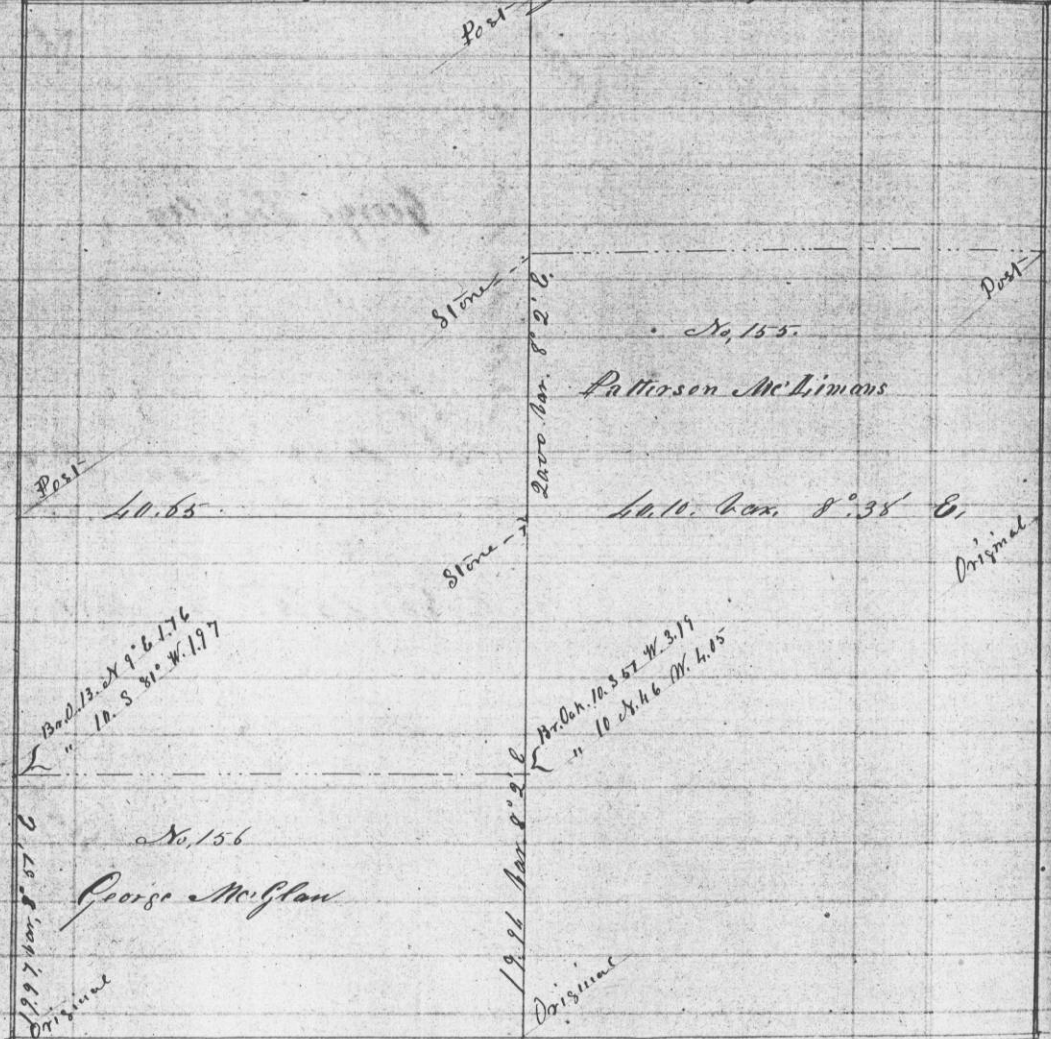 Post
Stone
Post
No, 155.
Patterson McLimans
20.00 Var. 8° 2' E.
Post
40.65
40.10. Var. 8°.38' E,
Stone
Original
Br.O. 13. N 9° E 1.76
" 10. S 81° W. 1.97
Br.Oak. 10. S 57 W. 3.19
" 10 N. 46 W. 4.05
No, 156
George McGlan
19.96 Var 8° 2' E
Original
Original